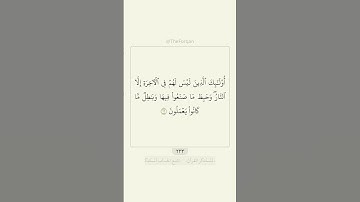 @TheFurqan
أُو۟لَٰٓئِكَ ٱلَّذِينَ لَيْسَ لَهُمْ فِى ٱلْءَاخِرَةِ إِلَّا
ٱلنَّارُ ۖ وَحَبِطَ مَا صَنَعُوا۟ فِيهَا وَبَٰطِلٌ مَّا
كَانُوا۟ يَعْمَلُونَ ١٦
٢٢٣